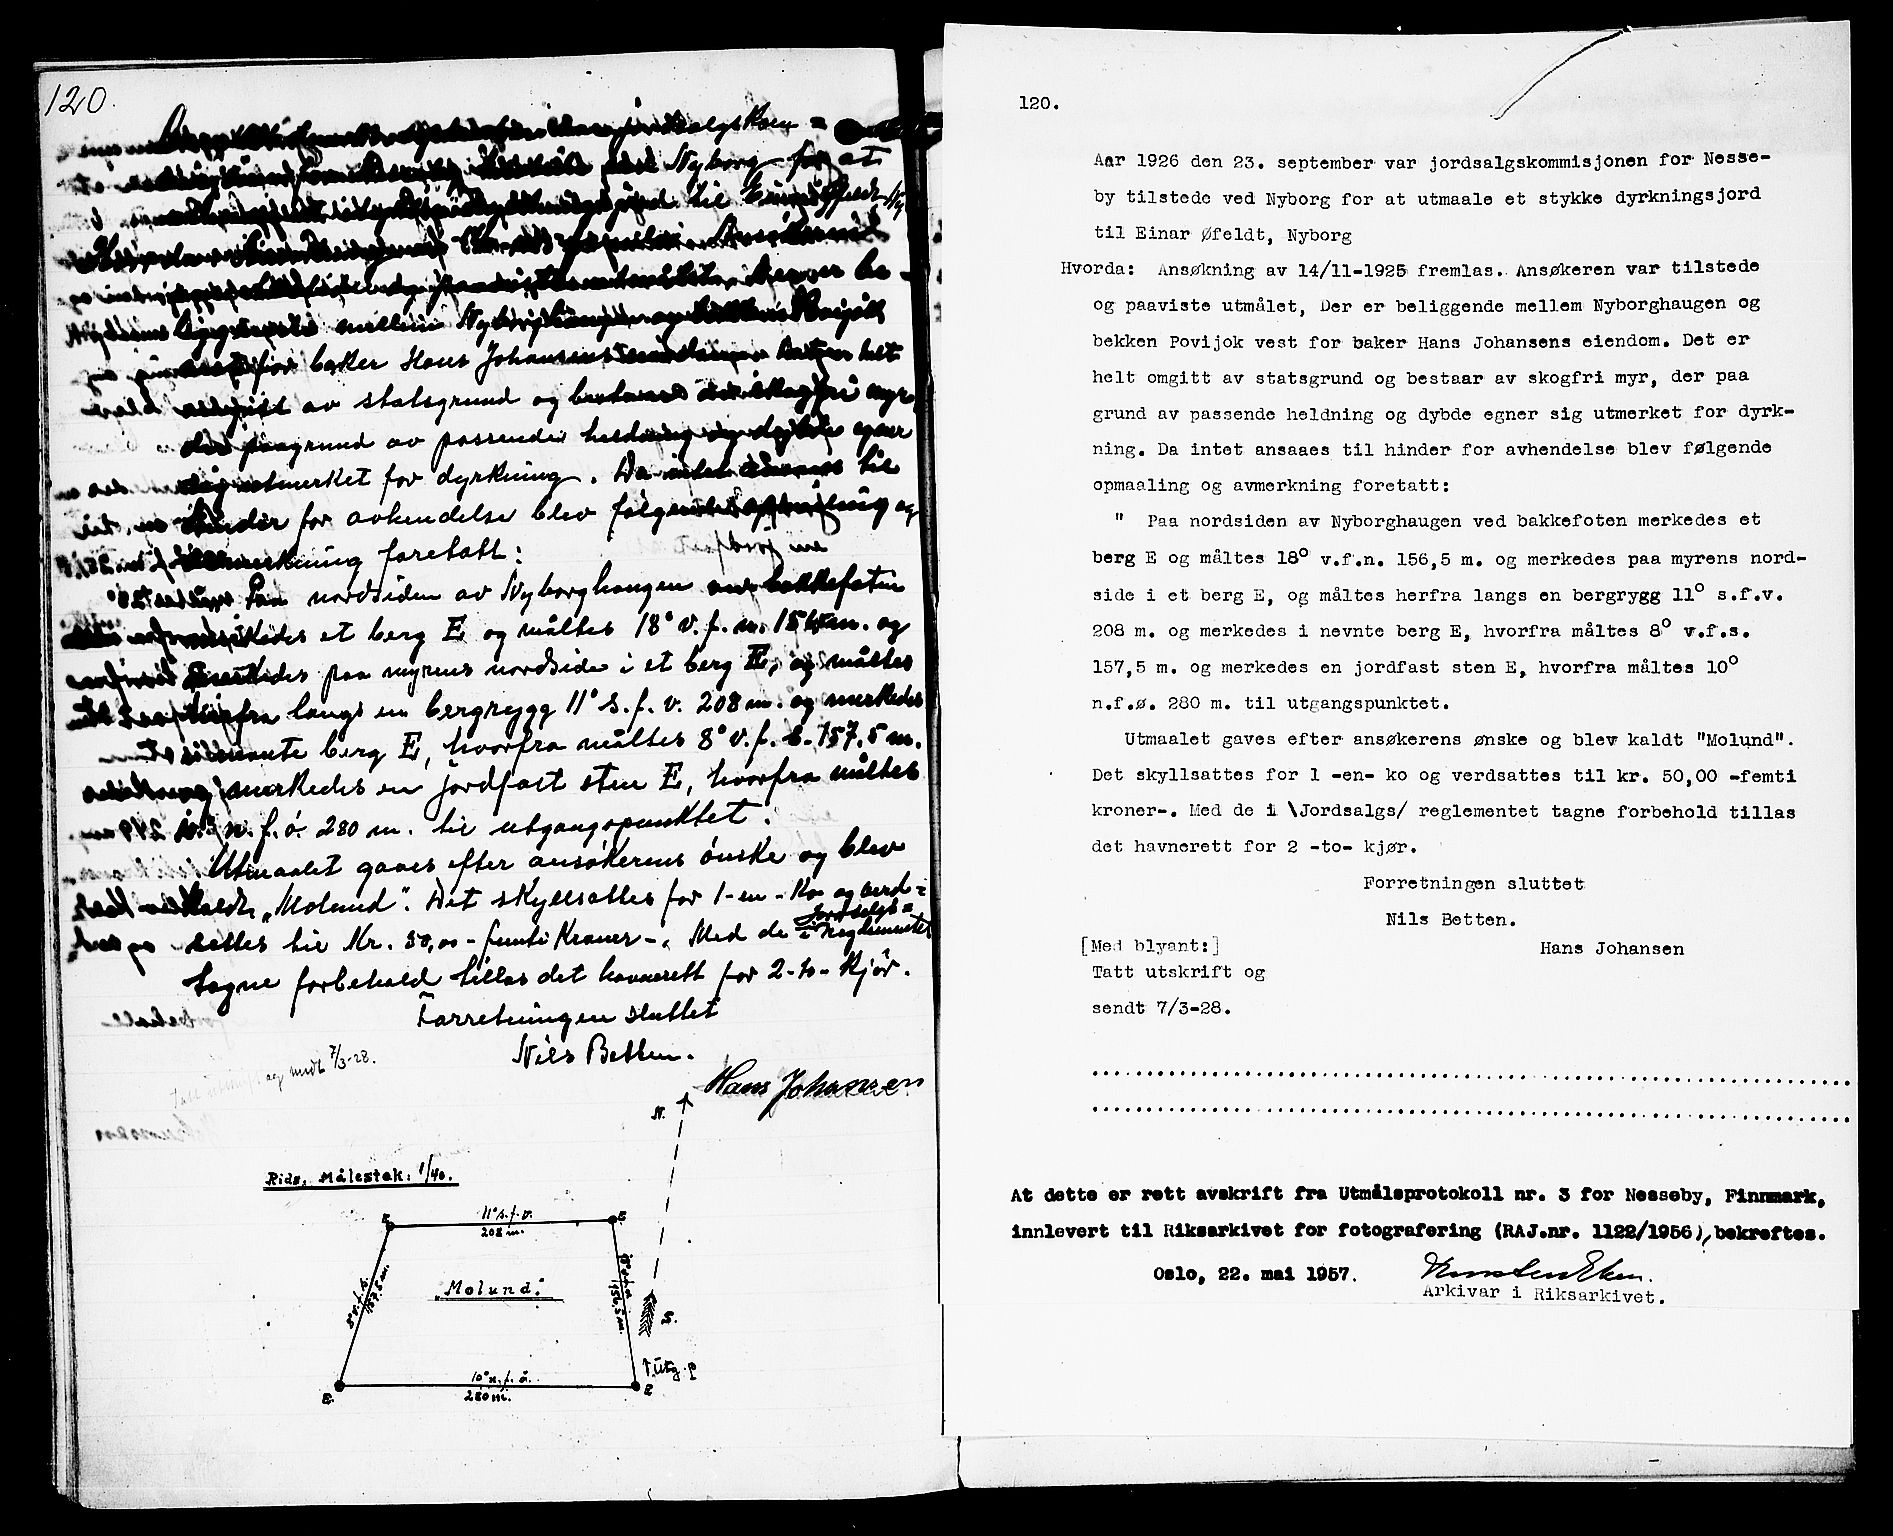 120.
jordsalgskom=
Nyborg for at
til Einar Øfeldt, N/g
mellem Nyborghaugen og bekken Povijok
vest for baker Hans Johansens eiendom. Det er helt
omgitt av statsgrund og bestaar av skogfri myr,
der paagrund av passende heldning og dybde egner
sig utmerket for dyrkning. Da intet ansaaes til
hinder for avhendelse blev følgende opmaaling og
avmerkning foretatt:
Paa nordsiden av Nyborghaugen ved bakkefoten
merkedes et berg E og måltes 18° v.f.n. 156,5 m. og
merkedes paa myrens nordside i et berg E, og måltes
herfra langs en bergrygg 11° s.f.v. 208 m. og merkedes
i nevnte berg E, hvorfra måltes 8° v.f.s. 157,5 m.
og merkedes en jordfast sten E, hvorfra måltes
10° n.f.ø. 280 m. til utgangspunktet.
Utmaalet gaves efter ansøkerens ønske og blev
kaldt „Molund". Det skyllsattes for 1-en- ko og verd=
sattes til Kr. 50,00 - femti Kroner -. Med de i Jordsalgs= reglementet
tagne forbehold tillas det havnerett for 2-to- kjør.
Forretningen sluttet
Nils Betten.
Tatt utskrift og sendt 7/3-28.
Hans Johansen
N.
Rids, Målestok: 1/40.
E
11° s.f.v.
208 m.
E
8° v.f.s.
157,5 m.
„Molund".
18° v.f.n.
156,5 m.
S.
Utg. p
E.
10° n.f.ø.
280 m.
E
120.
Aar 1926 den 23. september var jordsalgskommisjonen for Nesse-
by tilstede ved Nyborg for at utmaale et stykke dyrkningsjord
til Einar Øfeldt, Nyborg
Hvorda: Ansøkning av 14/11-1925 fremlas. Ansøkeren var tilstede
og paaviste utmålet, Der er beliggende mellem Nyborghaugen og
bekken Povijok vest for baker Hans Johansens eiendom. Det er
helt omgitt av statsgrund og bestaar av skogfri myr, der paa
grund av passende heldning og dybde egner sig utmerket for dyrk-
ning. Da intet ansaaes til hinder for avhendelse blev følgende
opmaaling og avmerkning foretatt:
" Paa nordsiden av Nyborghaugen ved bakkefoten merkedes et
berg E og måltes 18° v.f.n. 156,5 m. og merkedes paa myrens nord-
side i et berg E, og måltes herfra langs en bergrygg 11° s.f.v.
208 m. og merkedes i nevnte berg E, hvorfra måltes 8° v.f.s.
157,5 m. og merkedes en jordfast sten E, hvorfra måltes 10°
n.f.ø. 280 m. til utgangspunktet.
Utmaalet gaves efter ansøkerens ønske og blev kaldt "Molund".
Det skyllsattes for 1 -en- ko og verdsattes til kr. 50,00 -femti
kroner-. Med de i \Jordsalgs/ reglementet tagne forbehold tillas
det havnerett for 2 -to- kjør.
Forretningen sluttet
Nils Betten.
[Med blyant:] Hans Johansen
Tatt utskrift og
sendt 7/3-28.
At dette er rett avskrift fra Utmålsprotokoll nr. 3 for Nesseby, Finnmark,
innlevert til Riksarkivet for fotografering (RAJ.nr. 1122/1956), bekreftes.
Oslo, 22. mai 1957.
Arkivar i Riksarkivet.